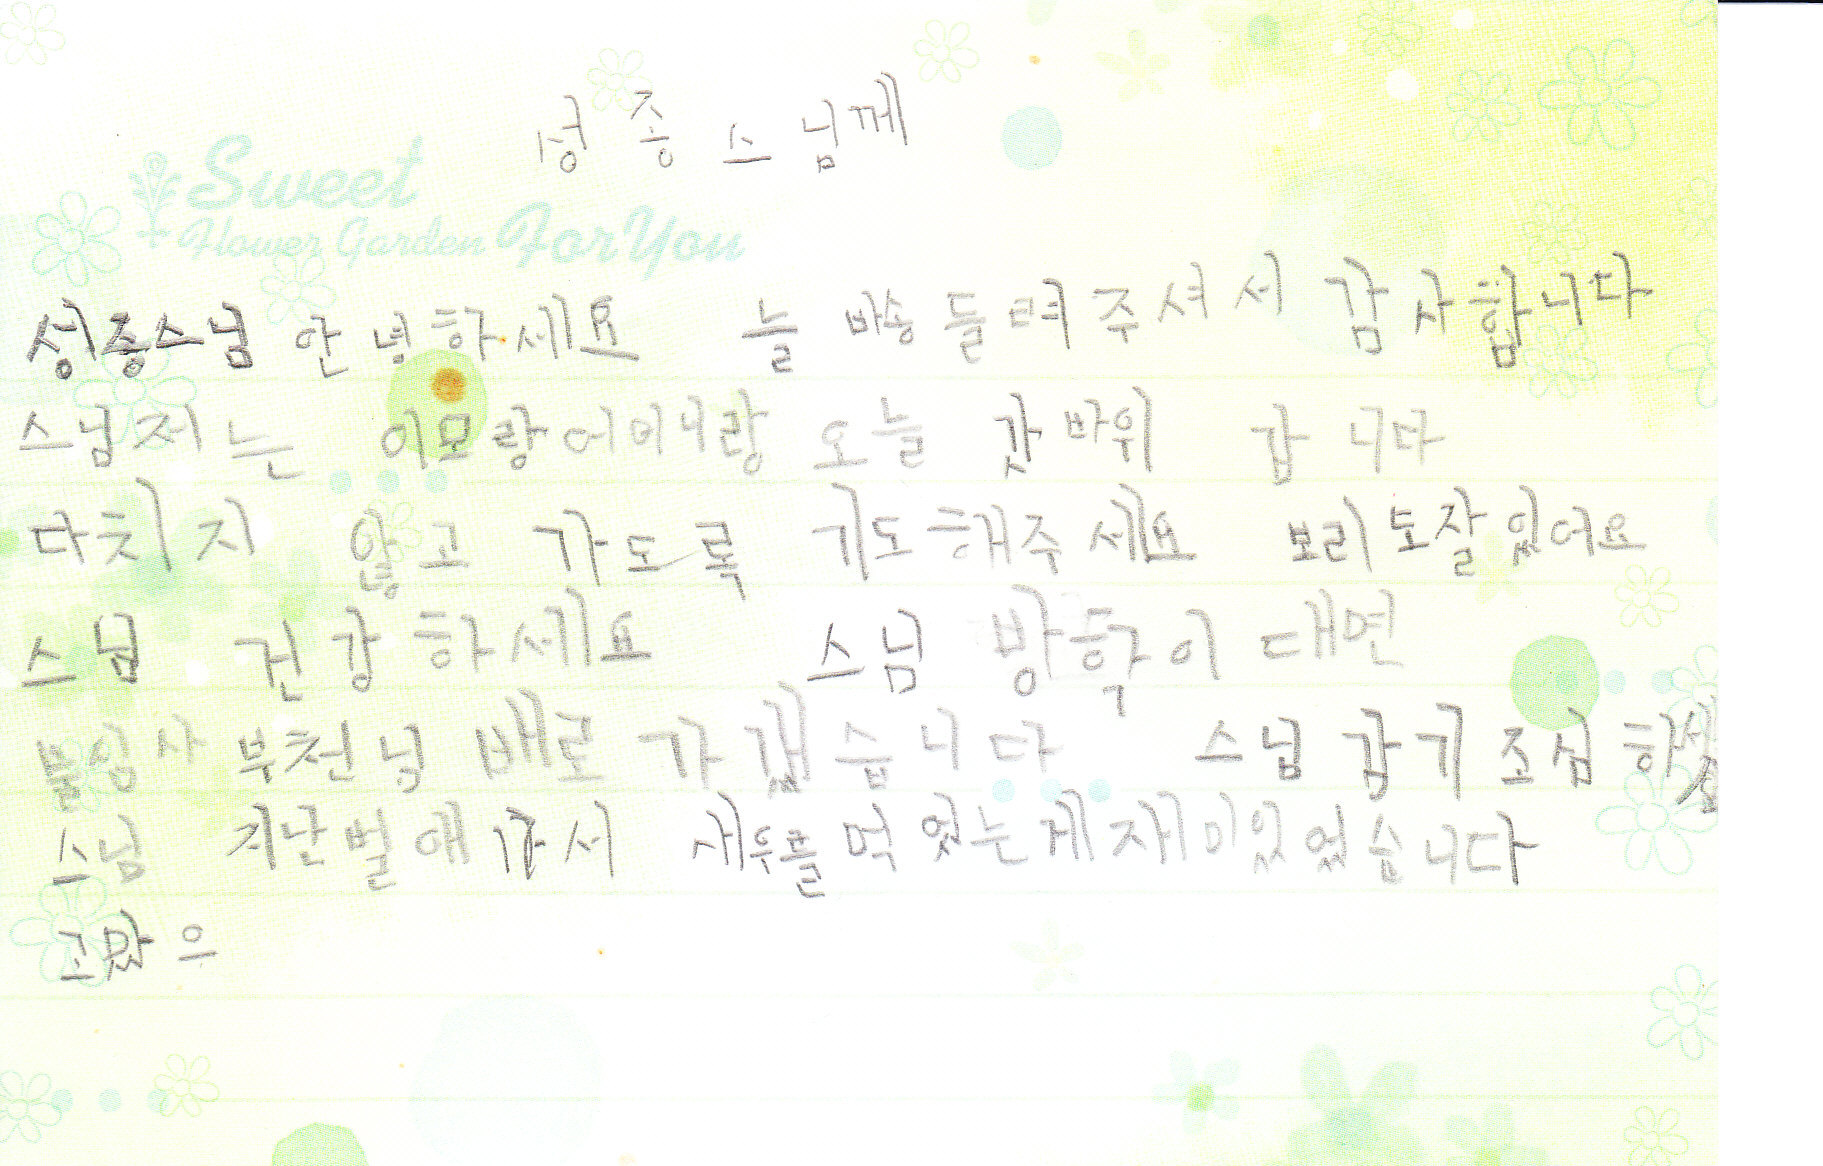 성종스님께
Sweet
Flower Garden For You
성종스님 안녕하세요 늘 방송 들려주셔서 감사합니다
스님저는 이모랑어머니랑 오늘 갓바위 갑니다
다치지 않고 가도록 기도해주세요 보리도잘있어요
스님 건강하세요 스님 방학이 대면
불심사 부천님 배로 가갰습니다 스님 감기 조심하세요
스님 지난벌에 가서 새우를 먹었는게재미있었습니다
고맜으